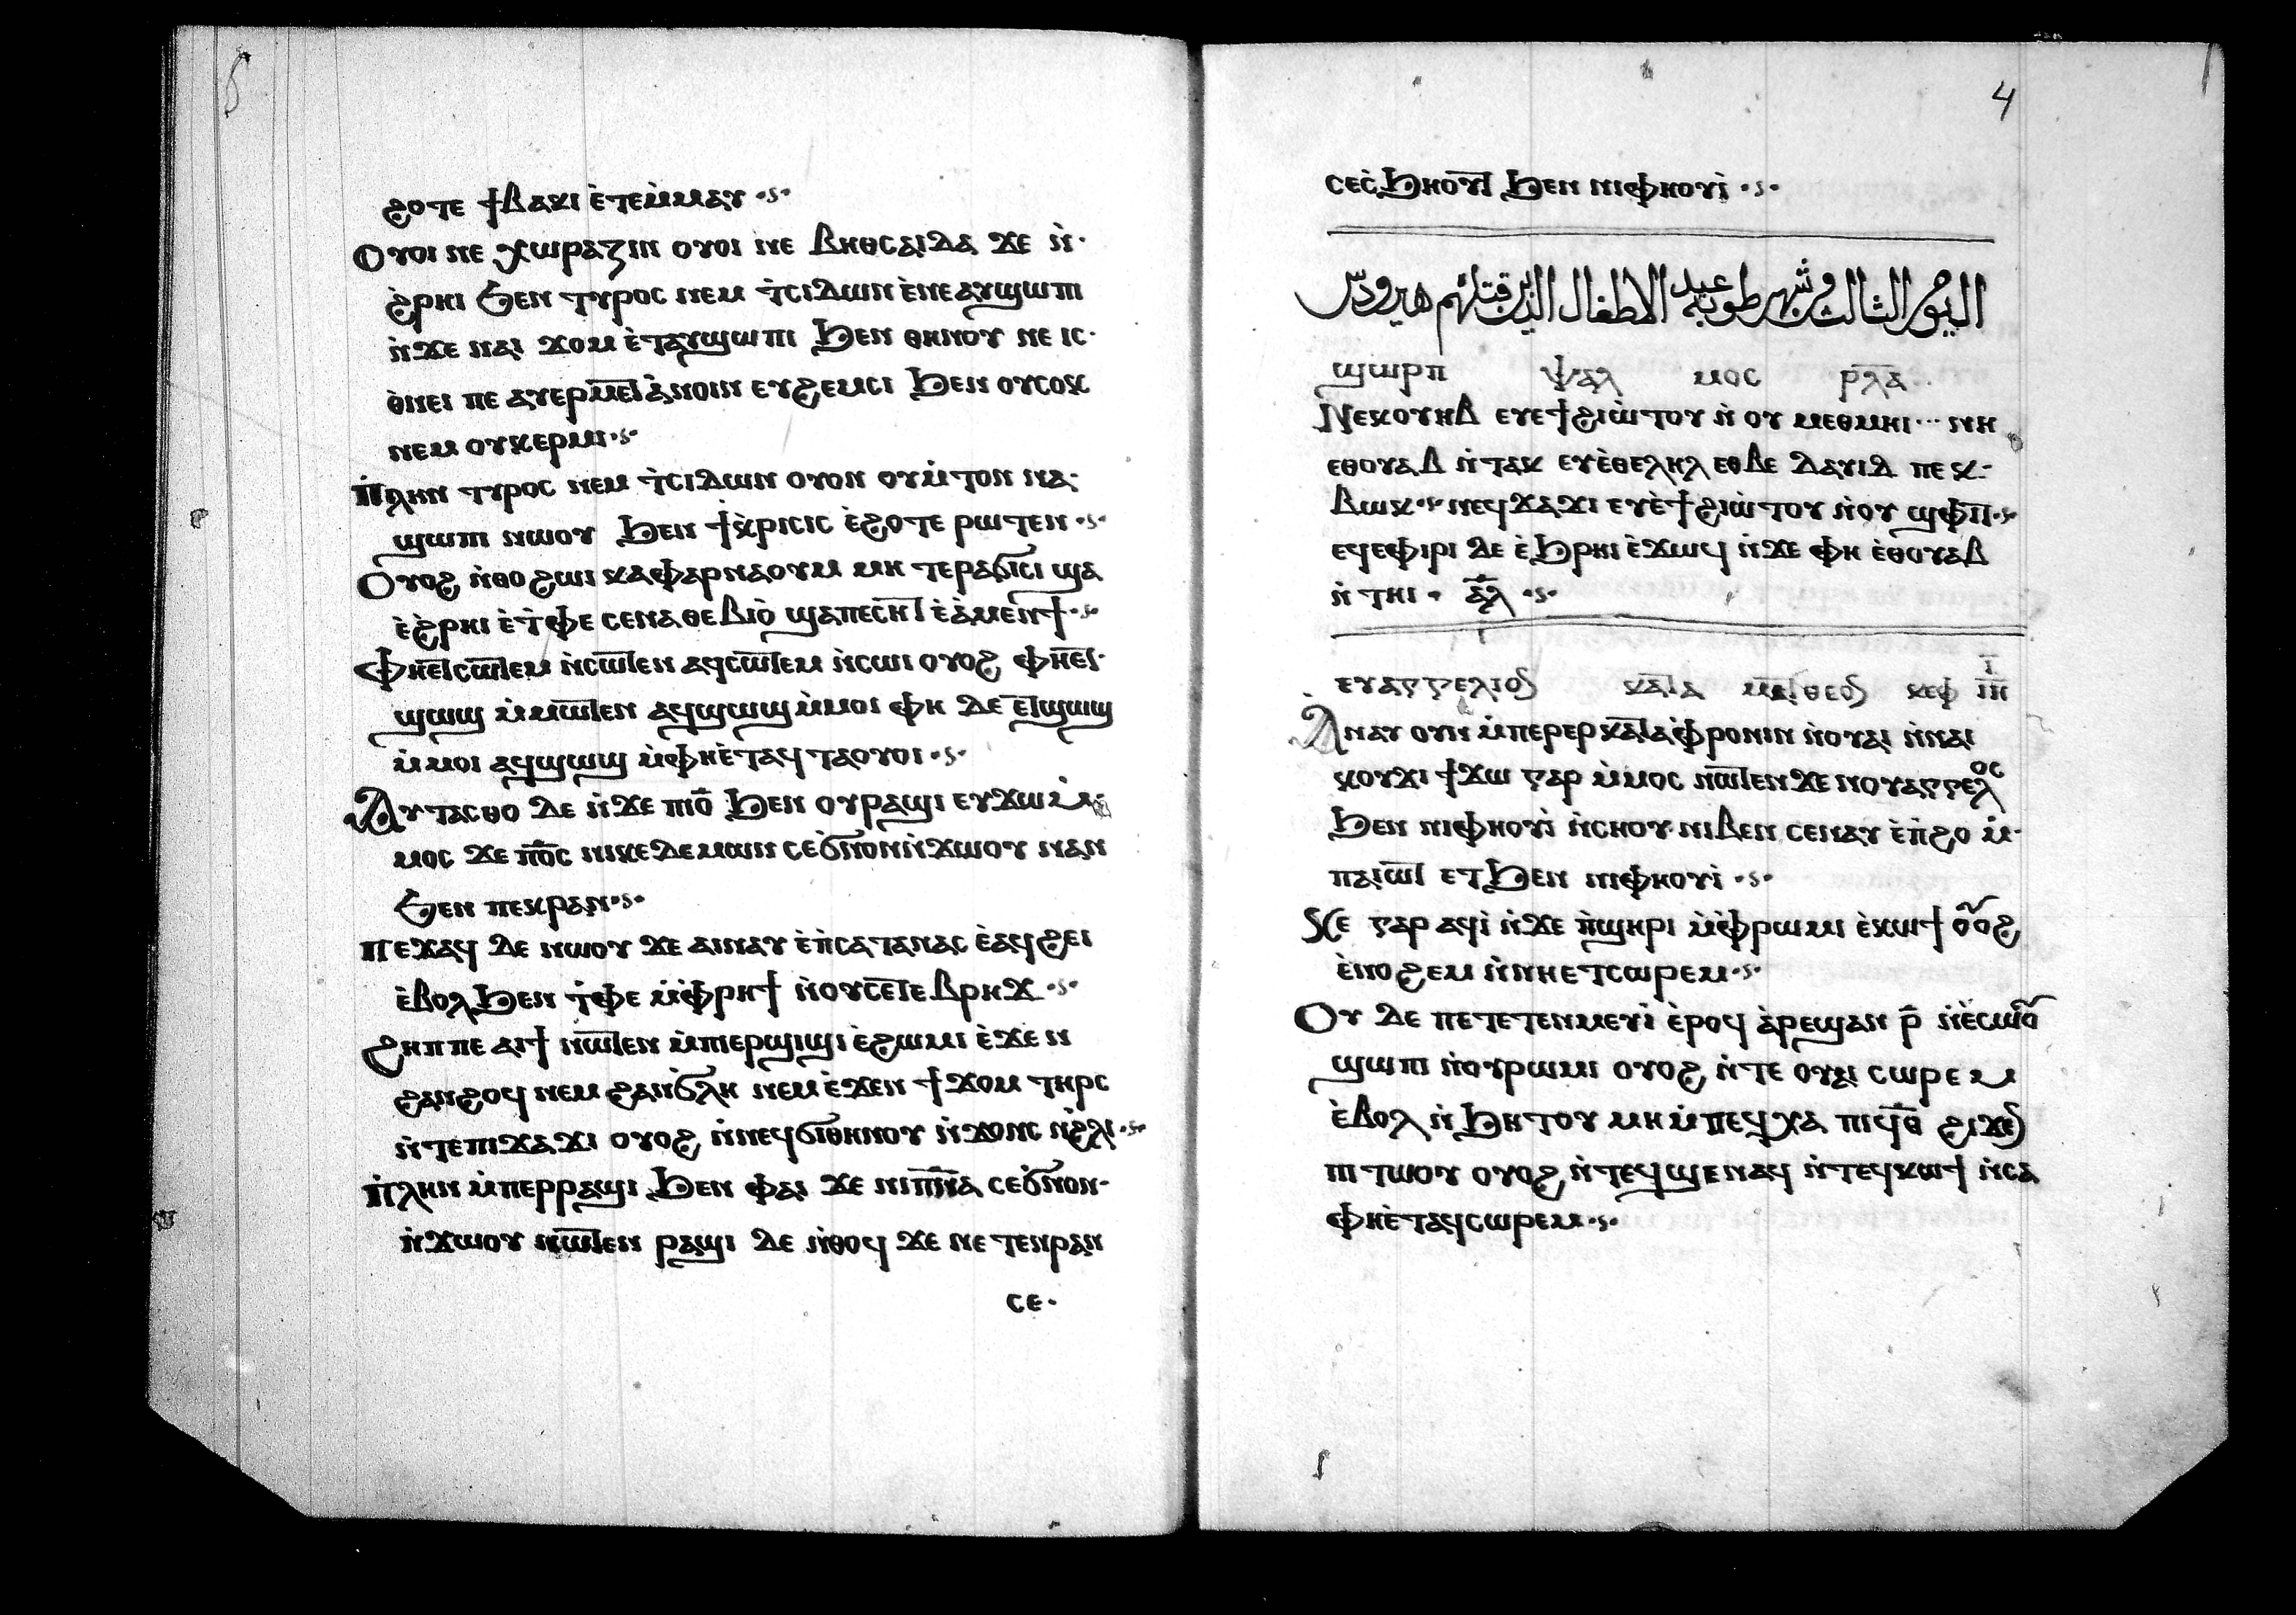 ϩⲟⲧⲉ ϯⲃⲁⲕⲓ ⲉ̀ⲧⲉⲙ̀ⲙⲁⲩ
Ⲟⲩⲟⲓ ⲛⲉ ⲭⲱⲣⲁⲍⲓⲛ ⲟⲩⲟⲓ ⲛⲉ ⲃⲏⲑⲥⲁⲓⲇⲁ ϫⲉ ⲛ̀
ϩ̀ⲣⲏⲓ ϧⲉⲛ ⲧⲩⲣⲟⲥ ⲛⲉⲙ ⲧ̀ⲥⲓⲇⲱⲛ ⲉ̀ⲛⲉⲁⲩϣⲱⲡⲓ
ⲛ̀ϫⲉ ⲛⲁⲓ ϫⲟⲙ ⲉ̀ⲧⲁⲩϣⲱⲡⲓ ϧⲉⲛ ⲑⲏⲛⲟⲩ ⲛⲉ ⲓⲥ
ϫⲉⲛ ⲡⲉ ⲁⲩⲉⲣⲙⲉⲧⲁ̀ⲛⲟⲓⲛ ⲉⲩϩⲉⲙⲥⲓ ϧⲉⲛ ⲟⲩⲥⲟⲕ
ⲛⲉⲙ ⲟⲩⲕⲉⲣⲙⲓ
Ⲡⲗⲏⲛ ⲧⲩⲣⲟⲥ ⲛⲉⲙ ⲧ̀ⲥⲓⲇⲱⲛ ⲟⲩⲟⲛ ⲟⲩⲙ̀ⲧⲟⲛ ⲛⲁ
ϣⲱⲡⲓ ⲛⲱⲟⲩ ϧⲉⲛ ϯⲕ̀ⲣⲓⲥⲓⲥ ⲉ̀ϩⲟⲧⲉ ⲣⲱⲧⲉⲛ
Ⲟⲩⲟϩ ⲛ̀ⲑⲟ ϩⲱⲓ ⲕⲁⲫⲁⲣⲛⲁⲟⲩⲙ ⲙⲏ ⲧⲉⲣⲁϭⲓⲥⲓ ϣⲁ
ⲉ̀ϩ̀ⲣⲏⲓ ⲉ̀ⲧ̀ⲫⲉ ⲥⲉⲛⲁⲑⲉⲃⲓⲟ̀ ϣⲁⲡⲉⲥⲏⲧ ⲉ̀ⲁ̀ⲙⲉⲛϯ
Ⲫⲏⲉⲧⲥⲱⲧⲉⲙ ⲛ̀ⲥⲱⲧⲉⲛ ⲁϥⲥⲱⲧⲉⲙ ⲛ̀ⲥⲱⲓ ⲟⲩⲟϩ ⲫⲏⲉⲧ
ϣⲱϣ ⲙ̀ⲙⲱⲧⲉⲛ ⲁϥϣⲱϣ ⲙ̀ⲙⲟⲓ ⲫⲏ ⲇⲉ ⲉⲧϣⲱϣ
ⲙ̀ⲙⲟⲓ ⲁϥϣⲱϣ ⲙ̀ⲫⲏⲉ̀ⲧⲁϥⲧⲁⲟⲩⲟⲓ
Ⲁⲩⲧⲁⲥⲑⲟ ⲇⲉ ⲛ̀ϫⲉ ⲡⲓⲟ̅ ϧⲉⲛ ⲟⲩⲣⲁϣⲓ ⲉⲩϫⲱ ⲙ̀
ⲙⲟⲥ ϫⲉ ⲡ̅ⲟ̅ⲥ ⲛⲓⲕⲉⲇⲉⲙⲱⲛ ⲥⲉϭ̀ⲛⲟⲛⲛ̀ϫⲱⲟⲩ ⲛⲁⲛ
ϧⲉⲛ ⲡⲉⲕⲣⲁⲛ
Ⲡⲉϫⲁϥ ⲇⲉ ⲛⲱⲟⲩ ϫⲉ ⲁⲓⲛⲁⲩ ⲉ̀ⲡ̀ⲥⲁⲧⲁⲛⲁⲥ ⲉ̀ⲁϥϩⲉⲓ
ⲉ̀ⲃⲟⲗϧⲉⲛ ⲧ̀ⲫⲉ ⲙ̀ⲫ̀ⲣⲏϯ ⲛ̀ⲟⲩⲥⲉⲧⲉⲃⲣⲏϫ
Ϩⲏⲡⲡⲉ ⲁⲓϯ ⲛⲱⲧⲉⲛ ⲙ̀ⲡⲓⲉⲣϣⲓϣⲓ ⲉ̀ϩⲱⲙⲓ ⲉ̀ϫⲉⲛ
ϩⲁⲛϩⲟϥ ⲛⲉⲙ ϩⲁⲛϭ̀ⲗⲏ ⲛⲉⲙ ⲉ̀ϫⲉⲛ ϯϫⲟⲙ ⲧⲏⲣⲥ
ⲛ̀ⲧⲉⲡⲓϫⲁϫⲓ ⲟⲩⲟϩ ⲛ̀ⲛⲉϥϭⲓⲑⲏⲛⲟⲩ ⲛ̀ϫⲟⲛⲥ ⲛ̀ϩ̀ⲗⲓ
Ⲡⲗⲏⲛ ⲙ̀ⲡⲉⲣⲣⲁϣⲓ ϧⲉⲛ ⲫⲁⲓ ϫⲉ ⲛⲓⲡ̅ⲛ̅ⲁ ⲥⲉϭ̀ⲛⲟⲛ
ⲛ̀ϫⲱⲟⲩ ⲛⲱⲧⲉⲛ ⲣⲁϣⲓ ⲇⲉ ⲛ̀ⲑⲟϥ ϫⲉ ⲛⲉⲧⲉⲛⲣⲁⲛ
ⲥⲉ
4
ⲥⲉⲥ̀ϧⲏⲟⲩⲧ ϧⲉⲛ ⲛⲓⲫⲏⲟⲩⲓ̀
اليوم الثالث من شهر طوبه عيد الاطفال الذين قتلهم هيرودس
ϣⲱⲣⲡ ⲯⲁⲗ ⲙⲟⲥ ⲣ̅ⲗ̅ⲁ̅
Ⲛⲉⲕⲟⲩⲏⲃ ⲉⲩⲉϯϩⲓⲱ̀ⲧⲟⲩ ⲛ̀ ⲟⲩ ⲙⲉⲑⲙⲏⲓ ⲛⲏ
ⲉⲑⲟⲩⲁⲃ ⲛ̀ⲧⲁⲕ ⲉⲩⲉ̀ⲑⲉⲗⲏⲗ ⲉⲑⲃⲉ ⲇⲁⲩⲓⲇ ⲡⲉⲕ
ⲃⲱⲕ ⲛⲉϥϫⲁϫⲓ ⲉⲩⲉ̀ϯϩⲓⲱ̀ⲧⲟⲩ ⲛ̀ⲟⲩ ϣⲫⲓⲧ
ⲉϥⲉⲫⲓⲣⲓ ⲇⲉ ⲉ̀ϧⲣⲏⲓ ⲉ̀ϫⲱϥ ⲛ̀ϫⲉ ⲫⲏ ⲉ̀ⲑⲟⲩⲁⲃ
ⲛ̀ⲧⲏⲓ ⲁ̅ⲗ̅
ⲉⲩⲁⲅⲅⲉⲗⲓⲟⲛ ⲕⲁⲧⲁ ⲙⲁⲧⲑⲉⲟⲛ ⲕⲉⲫ ⲓ̅ⲏ̅ ⲓ̅
Ⲁⲛⲁⲩ ⲟⲩⲛ ⲙ̀ⲡⲉⲣⲉⲣⲕⲁⲧⲁⲫ̀ⲣⲟⲛⲓⲛ ⲛ̀ⲟⲩⲁⲓ ⲛ̀ⲛⲁⲓ
ⲕⲟⲩϫⲓ ϯϫⲱ ⲅⲁⲣ ⲙ̀ⲙⲟⲥ ⲛⲱⲧⲉⲛ ϫⲉ ⲛⲟⲩⲁⲅⲅⲉⲗⲟⲥ
ϧⲉⲛ ⲛⲓⲫⲏⲟⲩⲓ̀ ⲛ̀ⲥⲏⲟⲩ ⲛⲓⲃⲉⲛ ⲥⲉⲛⲁⲩ ⲉ̀ⲡ̀ϩⲟ ⲙ̀
ⲡⲁⲓⲱⲧ ⲉⲧϧⲉⲛ ⲛⲓⲫⲏⲟⲩⲓ
Ϫⲉ ⲅⲁⲣ ⲁϥⲓ̀ ⲛ̀ϫⲉ ⲡ̀ϣⲏⲣⲓ ⲙ̀ⲫ̀ⲣⲱⲙⲓ ⲉ̀ⲕⲱϯ ⲟⲩⲟϩ
ⲉ̀ⲛⲟϩⲉⲙ ⲛ̀ⲛⲏⲉⲧⲥⲱⲣⲉⲙ
Ⲟⲩ ⲇⲉ ⲡⲉⲧⲉⲧⲉⲛⲙⲉⲩⲓ̀ ⲉ̀ⲣⲟϥ ⲁ̀ⲣⲉϣⲁⲛ ⲣ̅ ⲛ̀ⲉ̀ⲥⲱⲟⲩ
ϣⲱⲡⲓ ⲛ̀ⲟⲩⲣⲱⲙⲓ ⲟⲩⲟϩ ⲛ̀ⲧⲉ ⲟⲩⲁⲓ ⲥⲱⲣⲉⲙ
ⲉ̀ⲃⲟⲗ ⲛ̀ϧⲏⲧⲟⲩ ⲙⲏ ⲙ̀ⲡⲉϥⲭⲁ ⲡⲓϥ̅ⲑ̅ ϩⲓϫⲉⲛ
ⲡⲓⲧⲱⲟⲩ ⲟⲩⲟϩ ⲛ̀ⲧⲉϥϣⲉⲛⲁϥ ⲛ̀ⲧⲉϥⲕⲱϯ ⲛ̀ⲥⲁ
ⲫⲏⲉ̀ⲧⲁϥⲥⲱⲣⲉⲙ